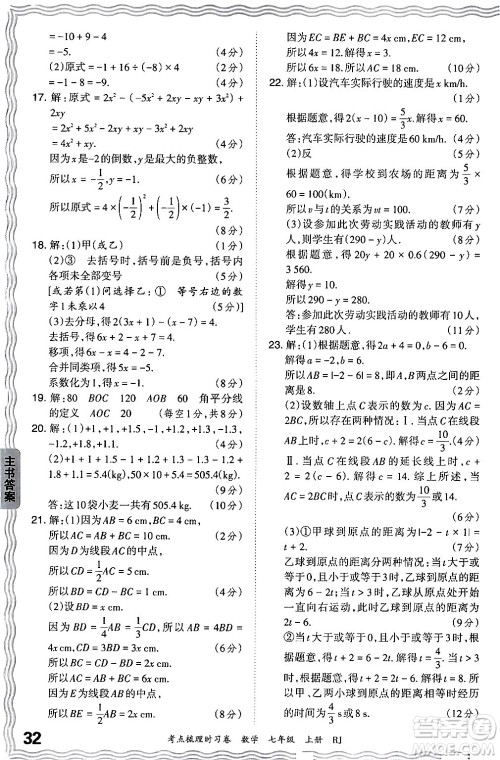 = -10 + 9 - 4
= -5. (4分)
(2)原式 = -1 + 16 ÷ (-8) × 4
= -1 - 8
= -9. (8分)
17. 解:原式 = 2x² - (-5x² + 2xy - xy + 3x²) +
2xy
= 2x² + 5x² - 2xy + xy - 3x² + 2xy
= 4x² + xy. (4分)
因为 x 是 -2 的倒数, y 是最大的负整数,
所以 x = -1/2, y = -1. (6分)
所以原式 = 4 × (-1/2)² + (-1/2) × (-1) =
3/2. (8分)
18. 解:(1)甲(或乙) (2分)
(2)③ 去括号时,括号前是负号,括号内
各项未全部变号 (5分)
[或若第(1)问选择乙:① 等号右边的数
字1未乘以4 (5分)]
(3)去分母,得
去括号,得 6x + 4 - 2x + 7 = 4.
移项,得 6x - 2x = 4 - 4 - 7.
合并同类项,得 4x = -7.
19. 解:80 BOC 120 AOB 60 角平分线
的定义 AOC (每空1分,共8分)
20. 解:(1)+1,+1,+1.5,-1,+1.2,+1.3,
-1.2,+1.8,+1.1 (5分)
(2)+1 + 1 + 1.5 - 1 + 1.2 + 1.3 - 1.3 - 1.2 +
1.8 + 1.1 = 5.4(kg), 50 × 10 + 5.4 = 505.4(kg).
(9分)
答:这10袋小麦一共有505.4 kg. (10分)
21. 解:(1)因为 AB = 6 cm, BC = 4 cm,
所以 AC = AB + BC = 10 cm. (2分)
因为 D 为线段 AC 的中点,
所以 CD = 1/2 AC = 5 cm. (4分)
所以 BD = CD - BC = 1 cm. (5分)
(2)设 BD = x cm.
因为 BD = 1/4 AB = 1/3 CD,
所以 AB = 4BD = 4x cm, CD = 3BD = 3x cm.
所以 BC = CD - BD = 2x cm. (7分)
所以 AC = AB + BC = 6x cm. (8分)
因为 E 为线段 AB 的中点,
所以 BE = 1/2 AB = 2x cm. (9分)
因为 EC = BE + BC = 4x cm, EC = 12 cm,
所以 4x = 12, 解得 x = 3.
所以 AC = 6x = 18 cm. (10分)
22. 解:(1)设汽车实际行驶的速度是 x km/h.
(1分)
根据题意,得 2(x - 10) = 5/3 x. 解得 x = 60.
答:汽车实际行驶的速度是 60 km/h. (4分)
(2)反 (5分)
根据题意,得学校到农场的距离为 5/3 ×
60 = 100(km).
所以 v 与 t 的关系为 vt = 100. (7分)
(3)设参加此次劳动实践活动的教师有 y
人,则学生有(290 - y)人. (8分)
根据题意,得 20y + 0.6 × 20(290 - y) =
3 560.
解得 y = 10.
所以 290 - y = 280.
答:参加此次劳动实践活动的教师有10
人,学生有280人. (11分)
23. 解:(1)根据题意,得 2a + 4 = 0, b - 6 = 0.
解得 a = -2, b = 6.
所以 |AB| = |-2 - 6| = 8, 即 A, B 两点之间的距
离为8. (4分)
(2)设数轴上点 C 表示的数为 c. (5分)
Ⅰ. 当点 C 在线段 AB 上时,得 c + 2 = 2(6 -
c). 解得 c = 10/3. (6分)
Ⅱ. 当点 C 在线段 AB 的延长线上时,得 c +
2 = 2(c - 6). 解得 c = 14. 综上所述,点 C
表示的数为 10/3 或 14. (7分)
(3)①甲球到原点的距离为 |-2 - t| = t + 2.
(8分)
乙球到原点的距离分两种情况:当 t 大于或
等于0且小于或等于3时,乙球到原点的距离
为 6 - 2t;当 t > 3 时,乙球从原点开始一
直向右运动,此时乙球到原点的距离为
2t - 6. (9分)
②当 t 大于或等于0且小于或等于3时,根据
题意,得 t + 2 = 6 - 2t. 解得 t = 4/3. (10分)
当 t > 3 时,根据题意,得 t + 2 = 2t - 6.
解得 t = 8. (11分)
主书答案
32
考点梳理时习卷 数学 七年级 上册 RJ